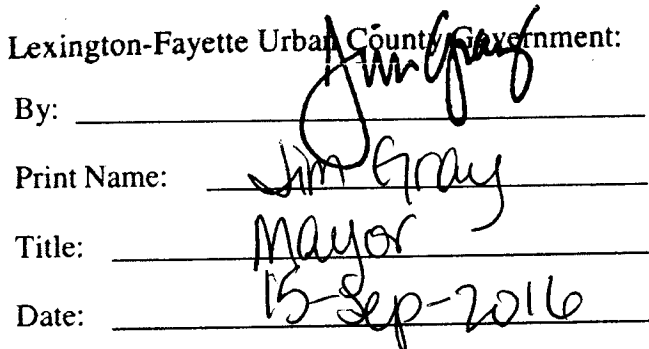 Lexington-Fayette Urban County Government:
By: Jim Gray
Print Name: Jim Gray
Title: Mayor
Date: 15-Sep-2016